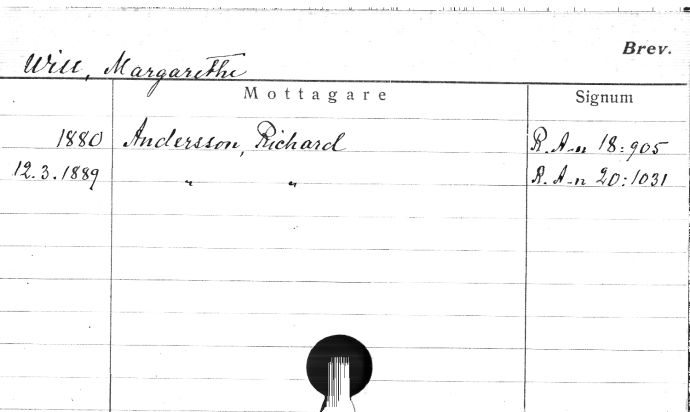 Brev.
Will, Margarethe
Mottagare Signum
1880 Andersson, Richard R. A-n 18:905
12.3.1889 " " R. A-n 20:1031